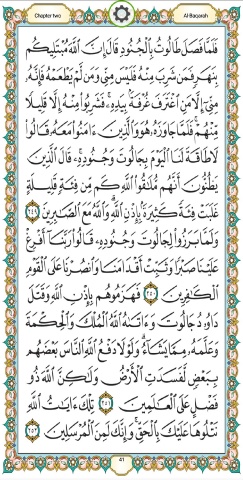 Chapter two Al-Baqarah
فَلَمَّا فَصَلَ طَالُوتُ بِالْجُنُودِ قَالَ إِنَّ اللَّهَ مُبْتَلِيكُم
بِنَهَرٍ فَمَن شَرِبَ مِنْهُ فَلَيْسَ مِنِّي وَمَن لَّمْ يَطْعَمْهُ فَإِنَّهُ
مِنِّي إِلَّا مَنِ اغْتَرَفَ غُرْفَةً بِيَدِهِ فَشَرِبُوا مِنْهُ إِلَّا قَلِيلًا
مِّنْهُمْ فَلَمَّا جَاوَزَهُ هُوَ وَالَّذِينَ ءَامَنُوا مَعَهُ قَالُوا
لَا طَاقَةَ لَنَا الْيَوْمَ بِجَالُوتَ وَجُنُودِهِ قَالَ الَّذِينَ
يَظُنُّونَ أَنَّهُم مُّلَاقُوا اللَّهِ كَم مِّن فِئَةٍ قَلِيلَةٍ
غَلَبَتْ فِئَةً كَثِيرَةً بِإِذْنِ اللَّهِ وَاللَّهُ مَعَ الصَّابِرِينَ ٢٤٩
وَلَمَّا بَرَزُوا لِجَالُوتَ وَجُنُودِهِ قَالُوا رَبَّنَا أَفْرِغْ
عَلَيْنَا صَبْرًا وَثَبِّتْ أَقْدَامَنَا وَانصُرْنَا عَلَى الْقَوْمِ
الْكَافِرِينَ ٢٥٠ فَهَزَمُوهُم بِإِذْنِ اللَّهِ وَقَتَلَ
دَاوُدُ جَالُوتَ وَءَاتَاهُ اللَّهُ الْمُلْكَ وَالْحِكْمَةَ
وَعَلَّمَهُ مِمَّا يَشَاءُ وَلَوْلَا دَفْعُ اللَّهِ النَّاسَ بَعْضَهُم
بِبَعْضٍ لَّفَسَدَتِ الْأَرْضُ وَلَٰكِنَّ اللَّهَ ذُو
فَضْلٍ عَلَى الْعَالَمِينَ ٢٥١ تِلْكَ ءَايَاتُ اللَّهِ
نَتْلُوهَا عَلَيْكَ بِالْحَقِّ وَإِنَّكَ لَمِنَ الْمُرْسَلِينَ ٢٥٢
41